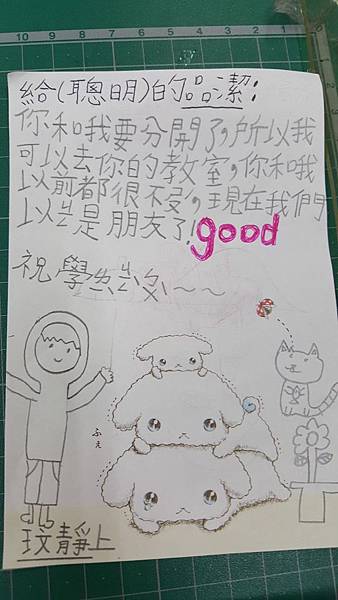 10 9 8 7 6 5 4 3 2 1
給(聰明)的品潔:
你和我要分開了,所以我
可以去你的教室,你和我
以前都很不,現在我們
以ㄓ是朋友了!good
祝學~~
ふぇ
玟靜上